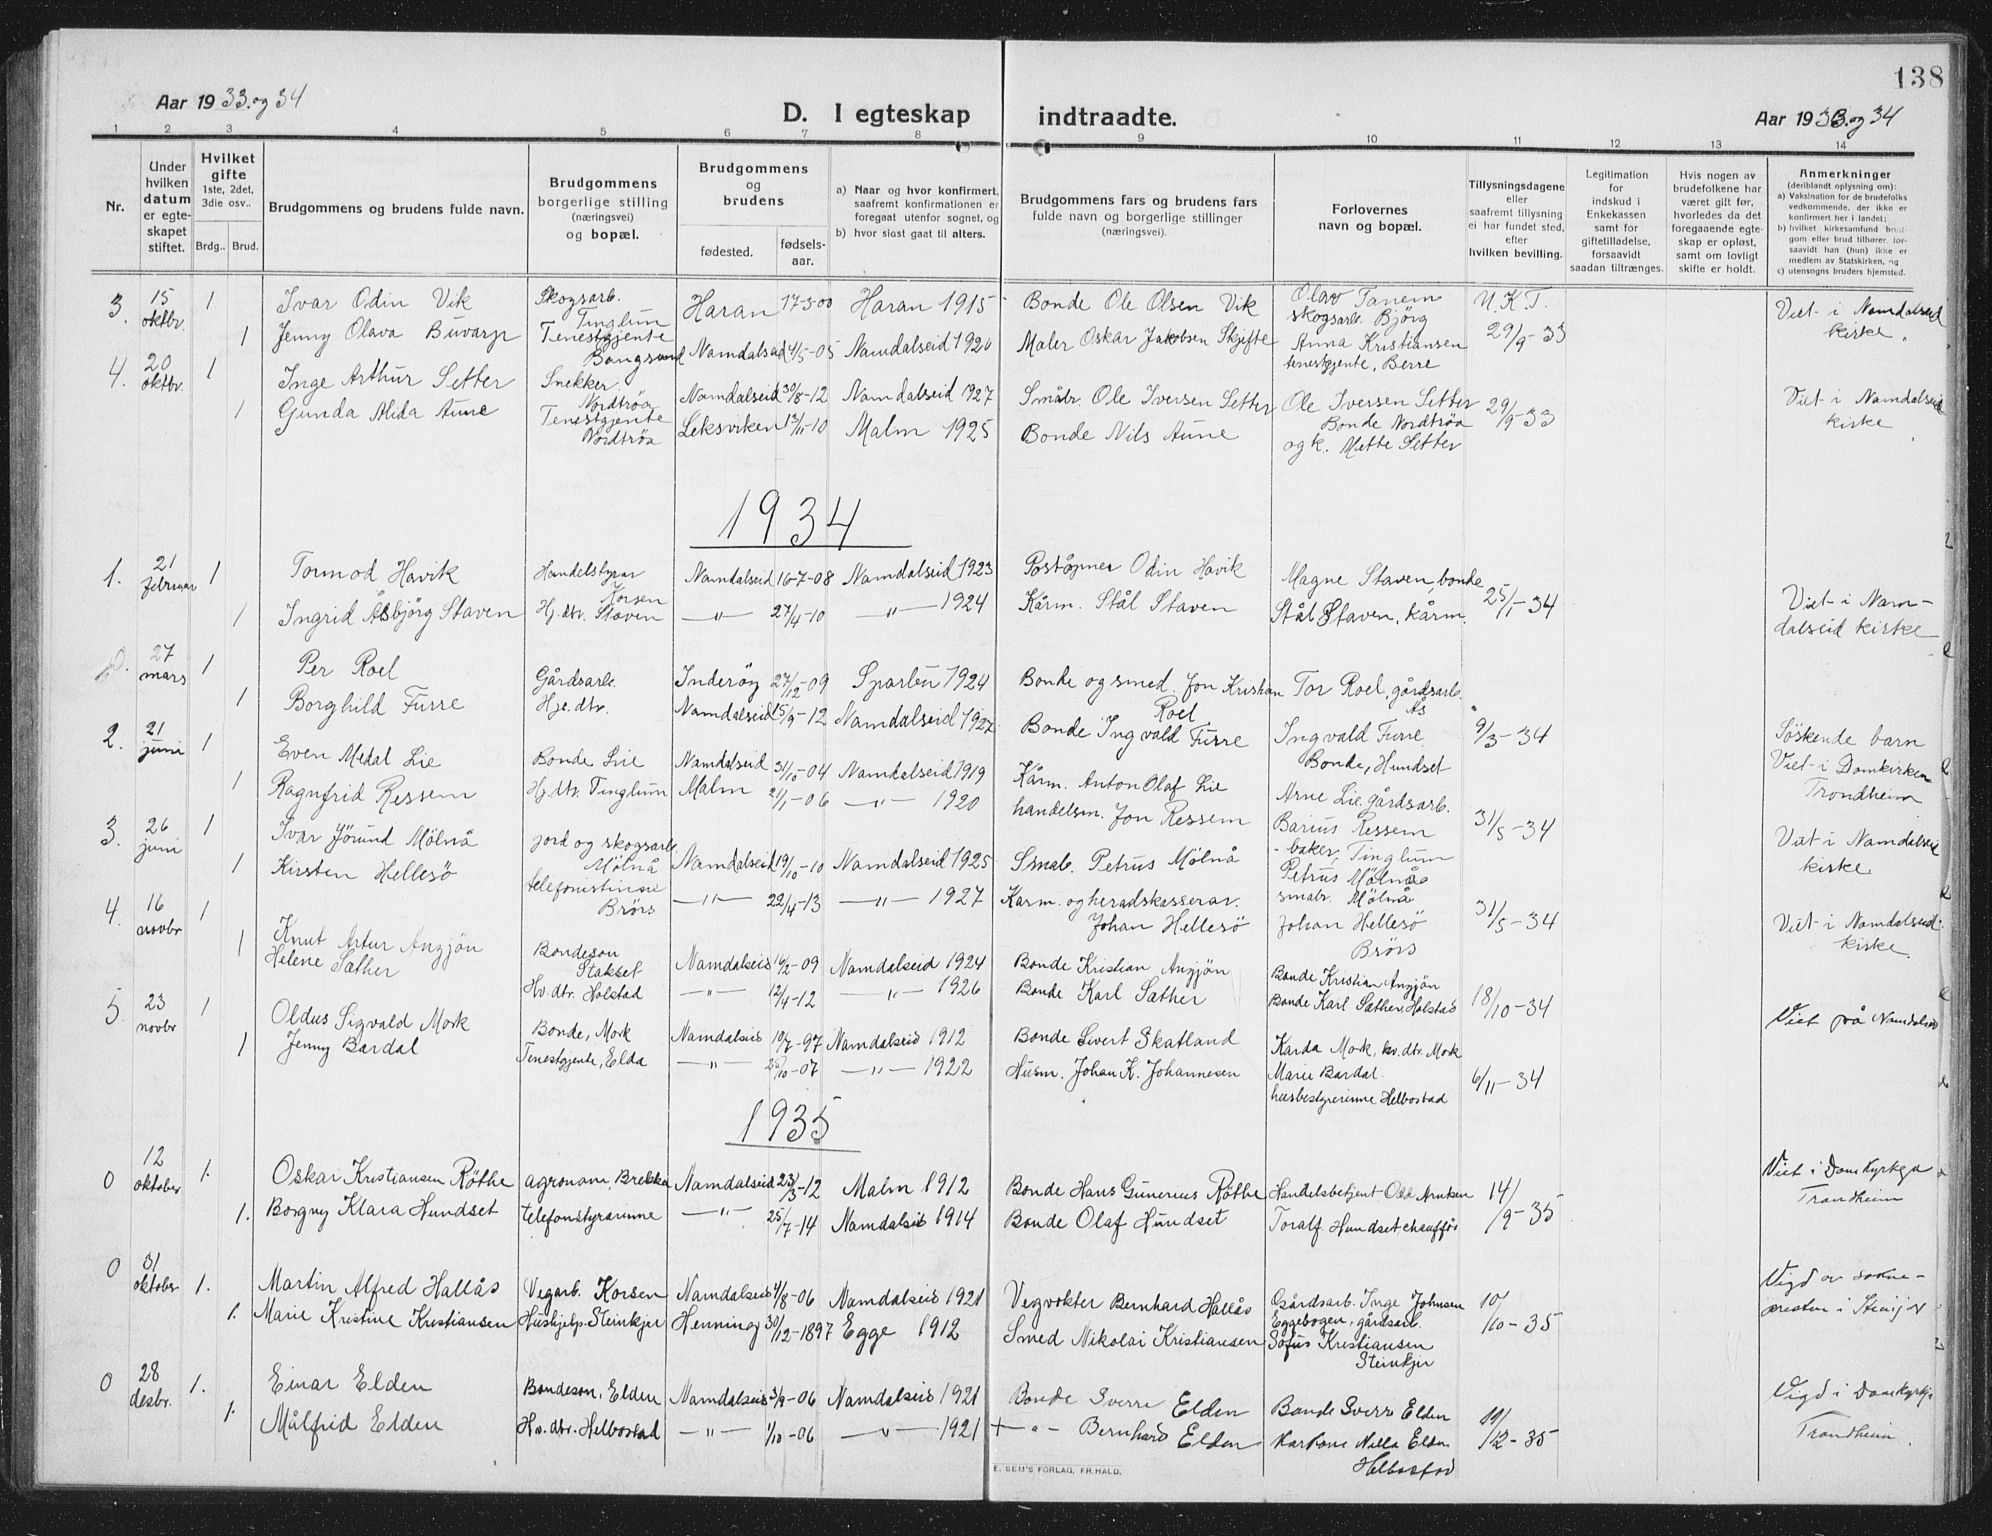 138
Aar 1933. og 34
D. I egteskap indtraadte.
Aar 1933. og 34
1 2 3 4 5 6 7 8 9 10 11 12 13 14
Nr.
Under hvilken datum er egteskapet stiftet.
Hvilket gifte
1ste, 2det, 3die osv..
Brdg.. Brud.
Brudgommens og brudens fulde navn.
Brudgommens borgerlige stilling (næringsvei) og bopæl.
Brudgommens og brudens
fødested.
fødselsaar.
a) Naar og hvor konfirmert, saafremt konfirmationen er foregaat utenfor sognet, og
b) hvor sisst gaat til alters.
Brudgommens fars og brudens fars fulde navn og borgerlige stillinger (næringsvei).
Forlovernes navn og bopæl.
Tillysningsdagene eller saafremt tillysning ei har fundet sted, efter hvilken bevilling.
Legitimation for indskud i Enkekassen samt for giftetilladelse, forsaavidt saadan tiltrænges.
Hvis nogen av brudefolkene har været gift før, hvorledes da det foregaaende egteskap er opløst, samt om lovligt skifte er holdt.
Anmerkninger (deriblandt oplysning om):
a) Vaksination for de brudefolks vedkommende, der ikke er konfirmert her i landet;
b) hvilket kirkesamfund brudgom eller brud tilhører, forsaavidt han (hun) ikke er medlem av Statskirken, og
c) utensogns bruders hjemsted.
3. 15 oktbr. 1 Ivar Odin Vik Skogsarb. Tinglum Haran 17-5-00 Haran 1915 Bonde Ole Olsen Vik Olav Tanem skogsarb. Bjørg U.K.T. 29/9-33 Viet i Namdalseid kirke.
1 Jenny Olava Buvarp Tenestgjente Bangsund Namdalseid 4/5-05 Namdalseid 1920 Maler Oskar Jakobsen Skjefte Anna Kristiansen tenestgjente, Berre
4. 20 oktbr. 1 Inge Arthur Setter Snekker Nordtrøa Namdalseid 30/8-12 Namdalseid 1927 Småbr. Ole Iversen Setter Ole Iversen Setter Bonde Nordtrøa 29/9-33 Viet i Namdalseid kirke
1 Gunda Alida Aune Tenestgjente Nordtrøa Leksviken 13/11-10 Malm 1925 Bonde Nils Aune og k. Mette Setter
1934
1. 21 februar 1 Tormod Havik Handelstyrar Korsen Namdalseid 16-7-08 Namdalseid 1923 Postopner Odin Havik Magne Staven, bonde 25/1-34 Viet i Namdalseid kirke
1 Ingrid Åsbjørg Staven Hj.dtr. Staven —"— 27/4-10 —"— 1924 Kårm. Stål Staven Stål Staven, kårm.
0. 27 mars 1 Per Roel Gårdsarb. Inderøy 27/12-09 Sparbu 1924 Bonde og smed. Jon Kristian Roel Tor Roel, gårdsarb. Ås 9/3-34 Søskende barn Viet i Domkirken Trondheim
1 Borghild Furre Hje.dtr. Namdalseid 15/9-12 Namdalseid 1927 Bonde Ingvald Furre Ingvald Furre Bonde, Hundset
2. 21 juni 1 Even Medal Lie Bonde Lie Namdalseid 31/10-04 Namdalseid 1919 Kårm. Anton Olaf Lie Arne Lie, gårdsarb. 31/5-34 Viet i Namdalseid kirke
1 Ragnfrid Ressem Hj.dtr. Tinglum Malm 21/1-06 —"— 1920 handelsm. Jon Ressem Barius Ressem -baker, Tinglum
3. 26 juni 1 Ivar Jörund Mölnå jord og skogsarb. Mölnå Namdalseid 19/10-10 Namdalseid 1925 Smab. Petrus Mölnå Petrus Mölnå smabr. Mölnå 31/5-34 Viet i Namdalseid kirke.
1 Kirsten Hellesö telefonistinne Brörs —"— 22/4-13 —"— 1927 Karm. og heradskasserar. Johan Hellesö Johan Hellesö Brörs
4. 16 novbr 1 Knut Artur Angjön Bondeson Stakset Namdalseid 16/2-09 Namdalseid 1924 Bonde Kristian Angjön Bonde Kristian Angjön 18/10-34
1 Helene Sæther Hv.dtr. Holstad —"— 12/4-12 —"— 1926 Bonde Karl Sæther Bonde Karl Sæther, Holstad
5. 23 novbr 1 Oldus Sigvald Mork Bonde, Mork Namdalseid 10/7-97 Namdalseid 1912 Bonde Sivert Skatland Karda Mork, hv.dtr. Mork 6/11-34 Viet på Namdalseid
1 Jenny Bardal Tenestgjente, Elda —"— 25/10-07 —"— 1922 Husm. Johan K. Johannesen Marie Bardal husbestyrerinne Helbostad
1935
0 12 oktober 1. Oskar Kristiansen Röthe agronom, Brekka Namdalseid 23/3-12 Malm 1912 Bonde Hans Gunerius Röthe Handelsbetjent Odd Arntsen 14/9-35 Viet i Domkyrkja Trondheim
1. Borgny Klara Hundset telefonstyrarinne —"— 25/7-14 Namdalseid 1914 Bonde Olaf Hundset Toralf Hundset, chauffør
0 31 oktober 1. Martin Alfred Hallås Vegarb. Korsen Namdalseid 4/8-06 Namdalseid 1921 Vegvokter Bernhard Hallås Gårdsarb. Inge Johnsen Eggebogen, gårdsarb. 10/10-35 Vigd av sokne-presten i Steinkjer
1. Marie Kristine Kristiansen Hushjelp. Steinkjer Henning 30/12-1897 Egge 1912 Smed Nikolai Kristiansen Sofus Kristiansen Steinkjer
0 28 desbr. 1. Einar Elden Bondeson, Elden Namdalseid 3/9-06 Namdalseid 1921 Bonde Sverre Elden Bonde Sverre Elden 19/12-35 Vigd i Domkyrkja Trondheim.
1. Målfrid Elden Hv.dtr. Helbostad —"— 1/10-06 —"— 1921 + —"— Bernhard Elden Karkone Nilla Elden Helbostad
E. SEM'S FORLAG, FR.HALD.